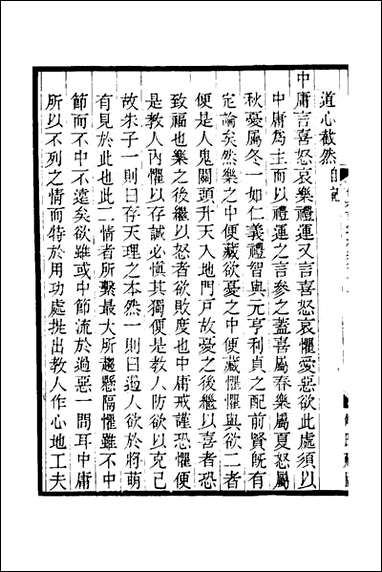 道心截然自記
中庸言喜怒哀樂禮運又言喜怒哀懼愛惡欲此處須以
中庸為主而以禮運之言參之蓋喜屬春樂屬夏怒屬
秋憂屬冬一如仁義禮智與元亨利貞之配前賢旣有
定論矣然樂之中便藏欲憂之中便藏懼懼與欲二者
便是人鬼關頭升天入地門戸故憂之後繼以喜者恐
致福也樂之後繼以怒者欲敗度也中庸戒謹恐懼便
是教人內懼以存誠必慎其獨便是教人防欲以克己
故朱子一則曰存天理之本然一則曰遏人欲於將萌
有見於此也此二情者所繫最大所趨懸隔懼雖不中
節而不中不遠矣欲雖或中節流於過惡一閒耳中庸
所以不列之情而特於用功處提出教人作心地工夫